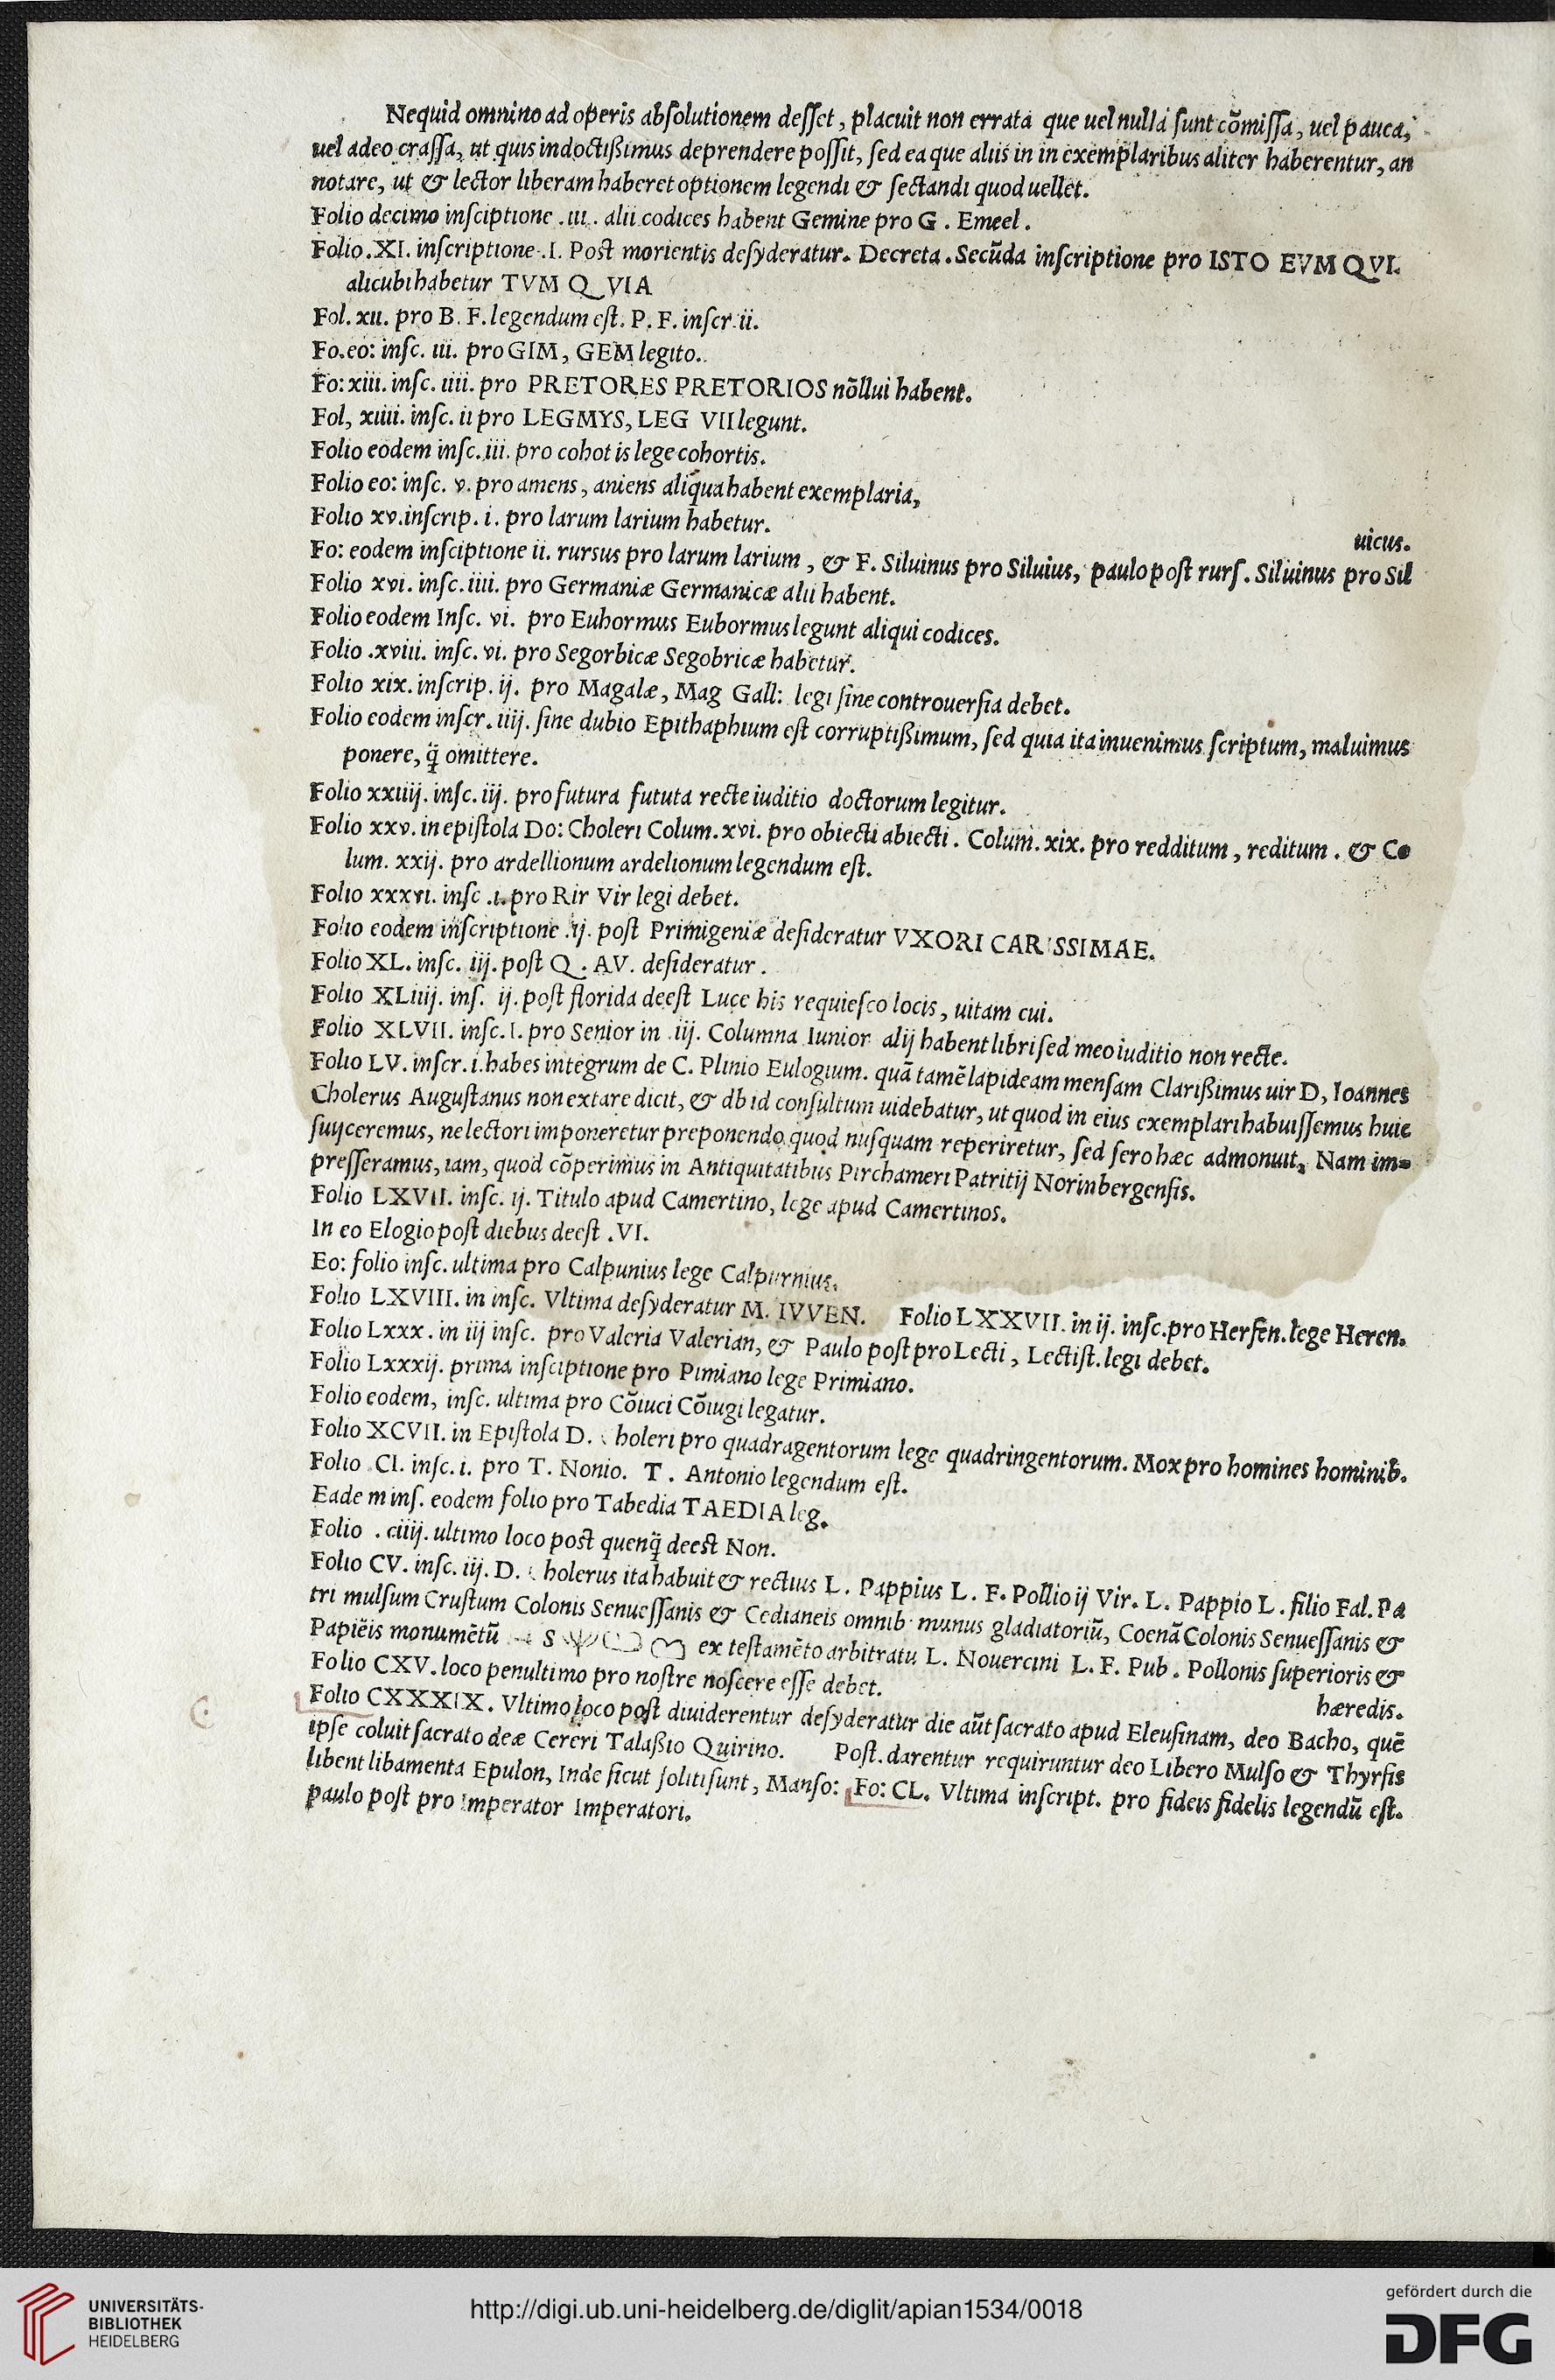 Nequid omnino ad operis absolutionem desset, placuit non errata que uel nulla sunt cōmissa, uel pauca,
uel adeo crassa, ut quis indoctißimus deprendere possit, sed ea que aliis in in exemplaribus aliter haberentur, an
notare, ut & lector liberam haberet optionem legendi & sectandi quod uellet.
Folio decimo insciptione .iii. alii codices habent Gemine pro G. Emeel.
Folio .XI. inscriptione .I. Post morientis desyderatur. Decreta. Secūda inscriptione pro ISTO EVM QVI.
alicubi habetur TVM QVIA
Fol. xii. pro B. F. legendum est. P. F. inscr. ii.
Fo. eo: insc. iii. pro GIM, GEM legito.
Fo: xiii. insc. iiii. pro PRETORES PRETORIOS nōllui habent.
Fol, xiiii. insc. ii pro LEGMYS, LEG VII legunt.
Folio eodem insc. iii. pro cohotis lege cohortis.
Folio eo: insc. v. pro amens, aniens aliqua habent exemplaria,
Folio xv. inscrip. i. pro larum larium habetur.
uicus.
Fo: eodem insciptione ii. rursus pro larum larium, & F. Siluinus pro Siluius, paulo post rurs. Siluinus pro Sil
Folio xvi. insc. iiii. pro Germaniæ Germanicæ alii habent.
Folio eodem Insc. vi. pro Euhormus Eubormus legunt aliqui codices.
Folio .xviii. insc. vi. pro Segorbicæ Segobricæ habetur.
Folio xix. inscrip. ij. pro Magalæ, Mag Gall: legi sine controuersia debet.
Folio eodem inscr. iiij. sine dubio Epithaphium est corruptißimum, sed quia ita inuenimus scriptum, maluimus
ponere, q̄ omittere.
Folio xxiiij. insc. iij. pro futura fututa recte iuditio doctorum legitur.
Folio xxv. in epistola Do: Choleri Colum. xvi. pro obiecti abiecti. Colum. xix. pro redditum, reditum. & Co
lum. xxij. pro ardellionum ardelionum legendum est.
Folio xxxvi. insc .i. pro Rir Vir legi debet.
Folio eodem inscriptione .ij. post Primigeniæ desideratur VXORI CARISSIMAE.
Folio XL. insc. iij. post Q. AV. desideratur.
Folio XLiiij. ins. ij. post florida deest Luce his requiesco locis, uitam cui.
Folio XLVII. insc. I. pro Senior in iij. Columna Iunior alij habent libri sed meo iuditio non recte.
Folio LV. inscr. i. habes integrum de C. Plinio Eulogium. quā tamē lapideam mensam Clarißimus uir D, Ioannes
Cholerus Augustanus non extare dicit, & db id consultum uidebatur, ut quod in eius exemplari habuissemus huic
suijceremus, ne lectori imponeretur preponendo quod nusquam reperiretur, sed sero hæc admonuit, Nam im=
presseramus, iam, quod cōperimus in Antiquitatibus Pirchameri Patritij Norinbergensis.
Folio LXVII. insc. ij. Titulo apud Camertino, lege apud Camertinos.
In eo Elogio post diebus deest .VI.
Eo: folio insc. ultima pro Calpunius lege Calpurnius.
Folio LXVIII. in insc. Vltima desyderatur M. IVVEN. Folio LXXVII. in ij. insc. pro Hersen. lege Heren.
Folio Lxxx. in iij insc. pro Valeria Valerian, & Paulo post pro Lecti, Lectist. legi debet.
Folio Lxxxij. prima insciptione pro Pimiano lege Primiano.
Folio eodem, insc. ultima pro Cōiuci Cōiugi legatur.
Folio XCVII. in Epistola D. holeri pro quadragentorum lege quadringentorum. Mox pro homines hominib.
Folio CI. insc. i. pro T. Nonio. T. Antonio legendum est.
Eadem ins. eodem folio pro Tabedia TAEDIA leg.
Folio . ciiij. ultimo loco post quenq̄ deest Non.
Folio CV. insc. iij. D. holerus ita habuit & rectius L. Pappius L. F. Pollio ij Vir. L. Pappio L. filio Fal. Pa
tri mulsum Crustum Colonis Senuessanis & Cedianeis omnib munus gladiatoriū, Coenā Colonis Senuessanis &
Papiēis monumētū S ex testamēto arbitratu L. Nouercini L. F. Pub. Pollonis superioris &
Folio CXV. loco penultimo pro nostre noscere esse debet.
hæredis.
Folio CXXXIX. Vltimo loco post diuiderentur desyderatur die aūt sacrato apud Eleusinam, deo Bacho, quē
ipse coluit sacrato deæ Cereri Talaßio Quirino. Post. darentur requiruntur deo Libero Mulso & Thyrsis
libent libamenta Epulon, Inde sicut soliti sunt, Manso: Fo: CL. Vltima inscript. pro fideis fidelis legendū est.
paulo post pro Imperator Imperatori.
UNIVERSITÄTS-
BIBLIOTHEK
HEIDELBERG
http://digi.ub.uni-heidelberg.de/diglit/apian1534/0018
gefördert durch die
DFG